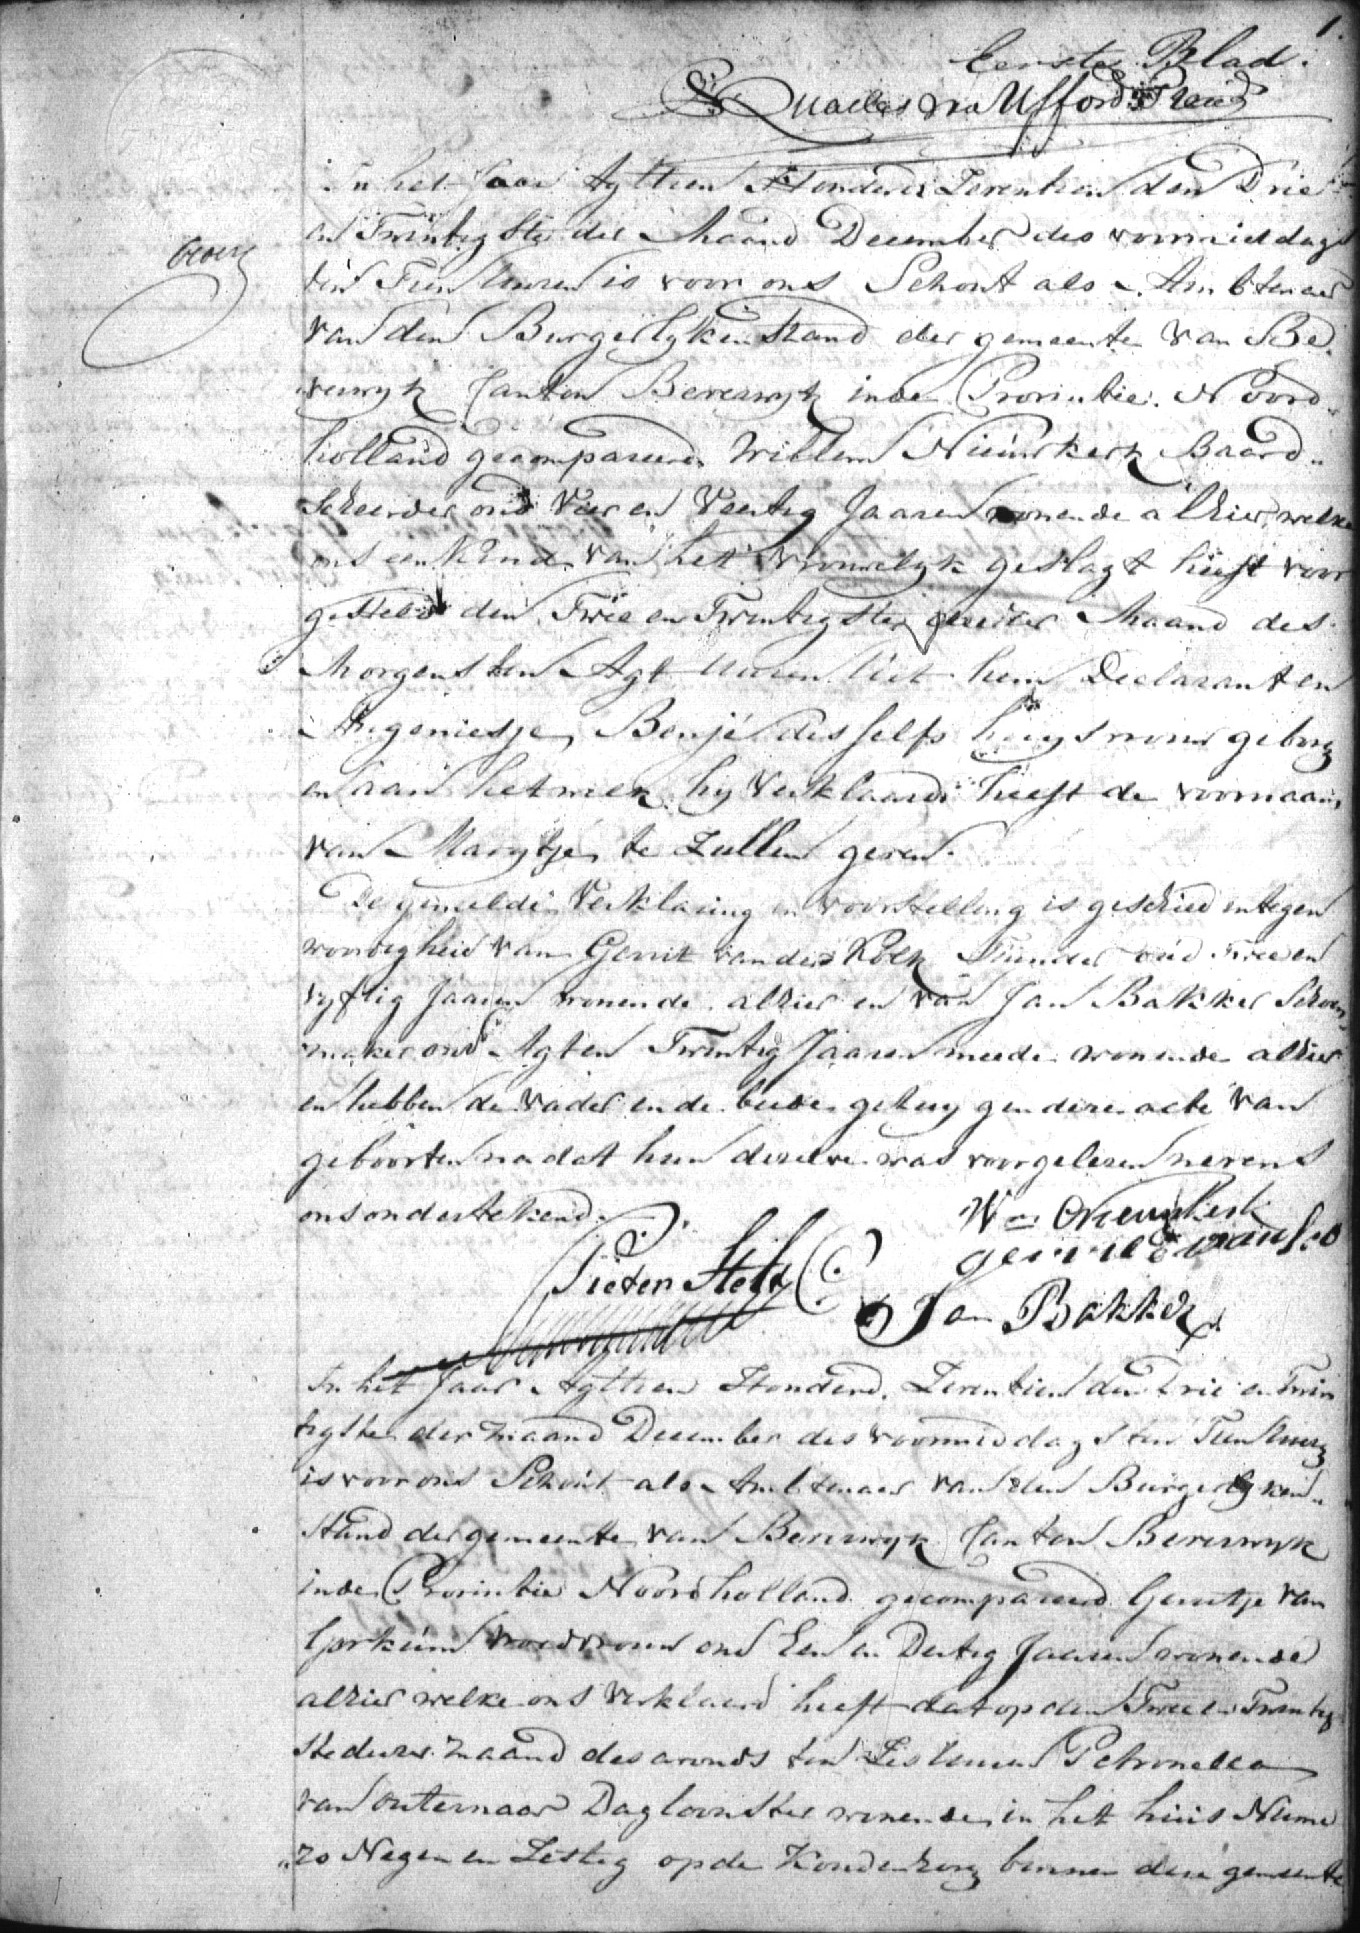 1.
Eerste Blad.
Quarles van Ufford
In het Jaar Agttien Honderd Zeventien den Drie
en Twintigste der Maand December des voormiddags
ten Tien Uuren is voor ons Schout als Ambtenaar
van den Burgerlyken Stand der gemeente van Be
verwyk Canton Beverwyk in de Provintie Noord
holland gecompareerd Willem Nieuwkerk Baard
scheerder oud Vier en Veertig Jaaren wonende alhier, welke
ons een Kind van het vrouwelyk geslagt heeft voor
gesteld den Twee en Twintigste dezer Maand des
Morgens ten Agt uuren uit hem Declarant en
Aegeniesje Benjé deszelfs huysvrouw geboor
en aan hetwelk hy verklaard heeft de voornaam
van Marytje te Zullen geven.
De gemelde Verklaring en voorstelling is geschied in tegen
woordigheid van Gerrit van der Kolk Tuinder oud Twee en
vyftig Jaaren wonende alhier en van Jan Bakker Schoen
maker oud Agt en Twintig Jaaren meede wonende alhier
en hebben de vader en de beide getuygen deze acte van
geboorten na dat hun dezelve was voorgelezen nevens
ons ondertekend.
Wm Nieuwkerk
Pieter
Jan Bakker
In het Jaar Agttien Honderd Zeventien den Drie en Twin
tigste der Maand December des voormiddags ten Tien Uuren
is voor ons Schout als Ambtenaar van den Burgerlyken
Stand der gemeente van Beverwyk Canton Beverwyk
in de Provintie Noordholland gecompareerd Geertje van
Gorkum vroedvrouw oud Een en Dertig Jaaren wonende
alhier welke ons verklaard heeft dat op den Twee en Twintig
ste dezer maand des avonds ten Zes Uuren Petronella
van Outernaar Dagloonster wonende in het huis Nume
ro Negen en Zestig op de Koudenhorn binnen deze gemeente